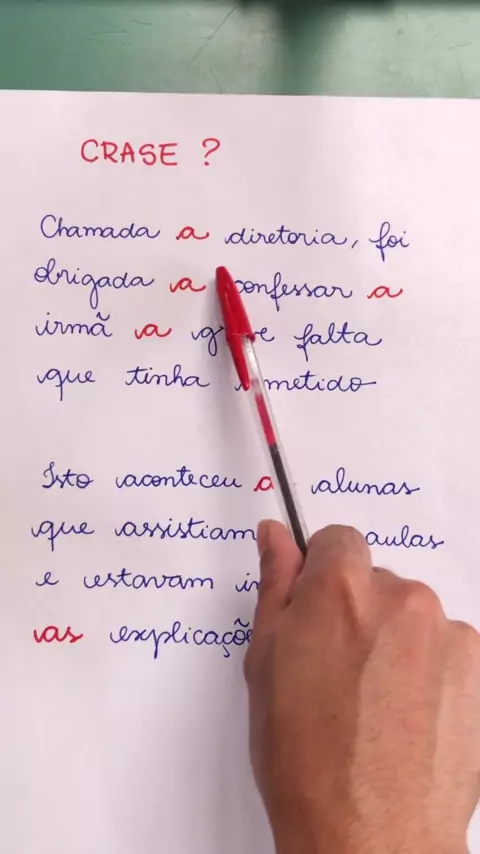 CRASE ?
Chamada a diretoria, foi
obrigada a confessar a
irmã a falta
que tinha
Isto aconteceu a alunas
que assistiam aulas
e estavam
as